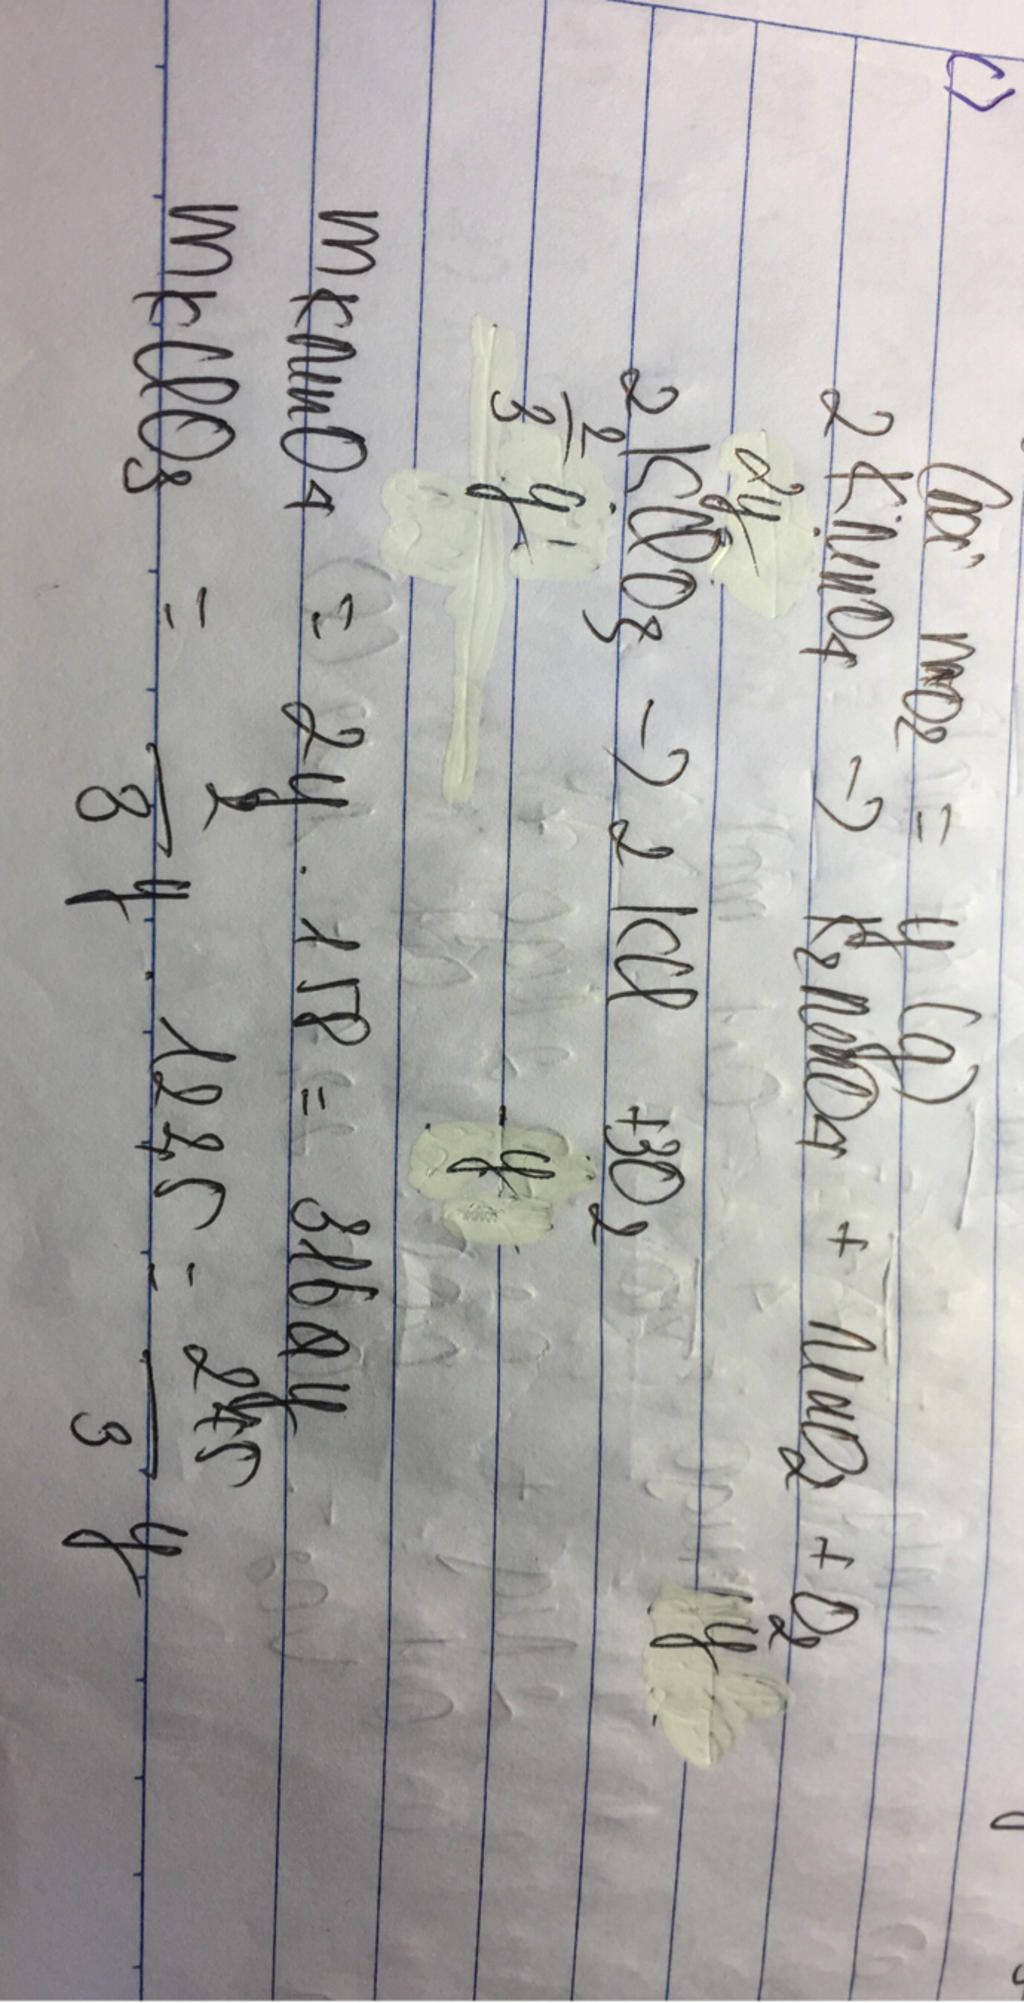 c)
mO2 = y (g)
2 KMnO4 -> K2MnO4 + MnO2 + O2
2y y
2 KClO3 -> 2 KCl + 3O2
2/3 y y
mKMnO4 = 2y . 158 = 316 y
mKClO3 = 2/3 y . 122,5 = 245/3 y